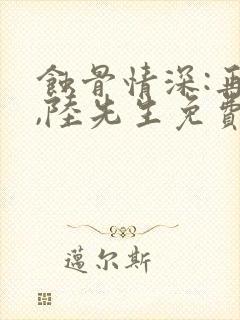 蝕骨情深:再
,陸先生免費
邁尔斯